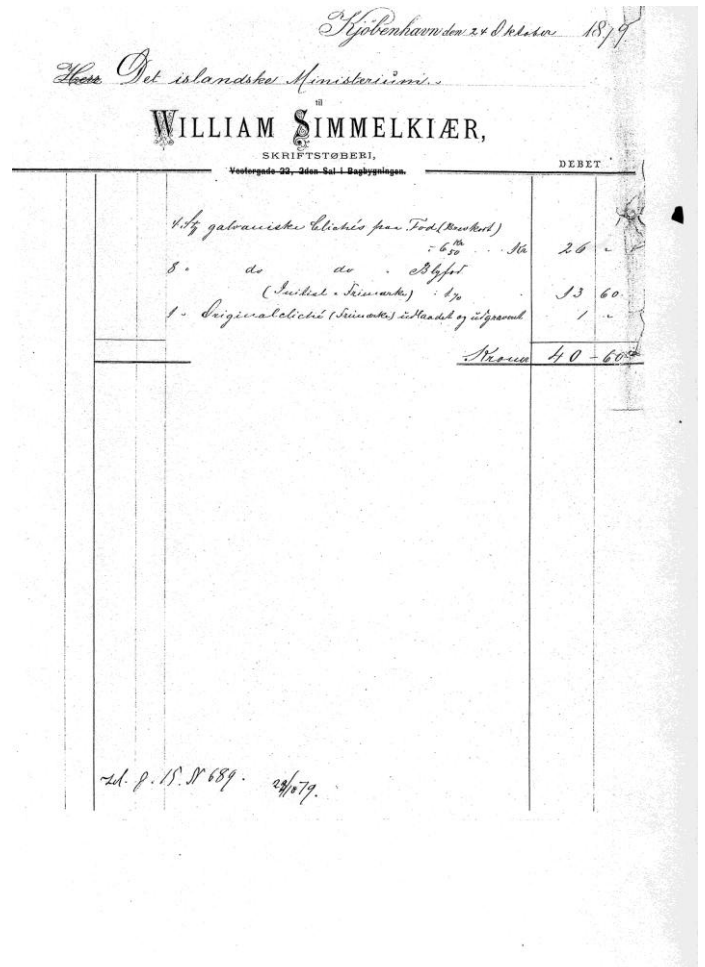 Kjöbenhavn den 24 Oktober 1879
Herr Det islandske Ministerium
til
WILLIAM SIMMELKIÆR,
SKRIFTSTØBERI,
Vestergade 22, 2den Sal i Bagbygningen.
DEBET
4 St galvaniske Clichés paa Fod (Brevkort)
6 Kr 50 Kr 26 "
8 " do do " Blyfod
(Frimærke) 1 70 13 60
1 " Originalcliché (Frimærke) og udgravet 1 "
Kroner 40 - 60
15. N 689. 79.